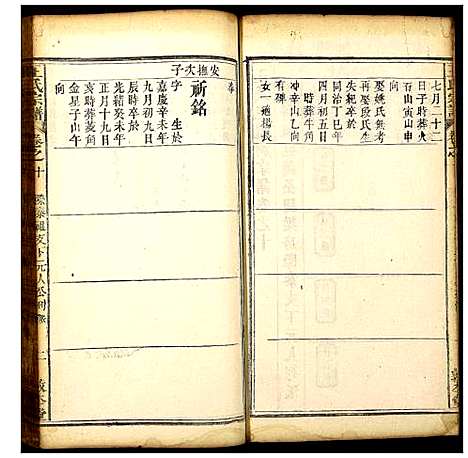 七月二十二
日子時葬火
石山寅山申
向
娶姚氏無考
再娶段氏生
失紀卒於
同治丁巳年
四月初五日
丑時葬牛角
冲辛山乙向
有碑
女一適楊長
安撫次子
祈銘
字 生於
嘉慶辛未年
九月初九日
辰時卒於
光緒癸未年
正月十九日
亥時葬菱角
金星子山午
向
王氏宗譜
卷之十